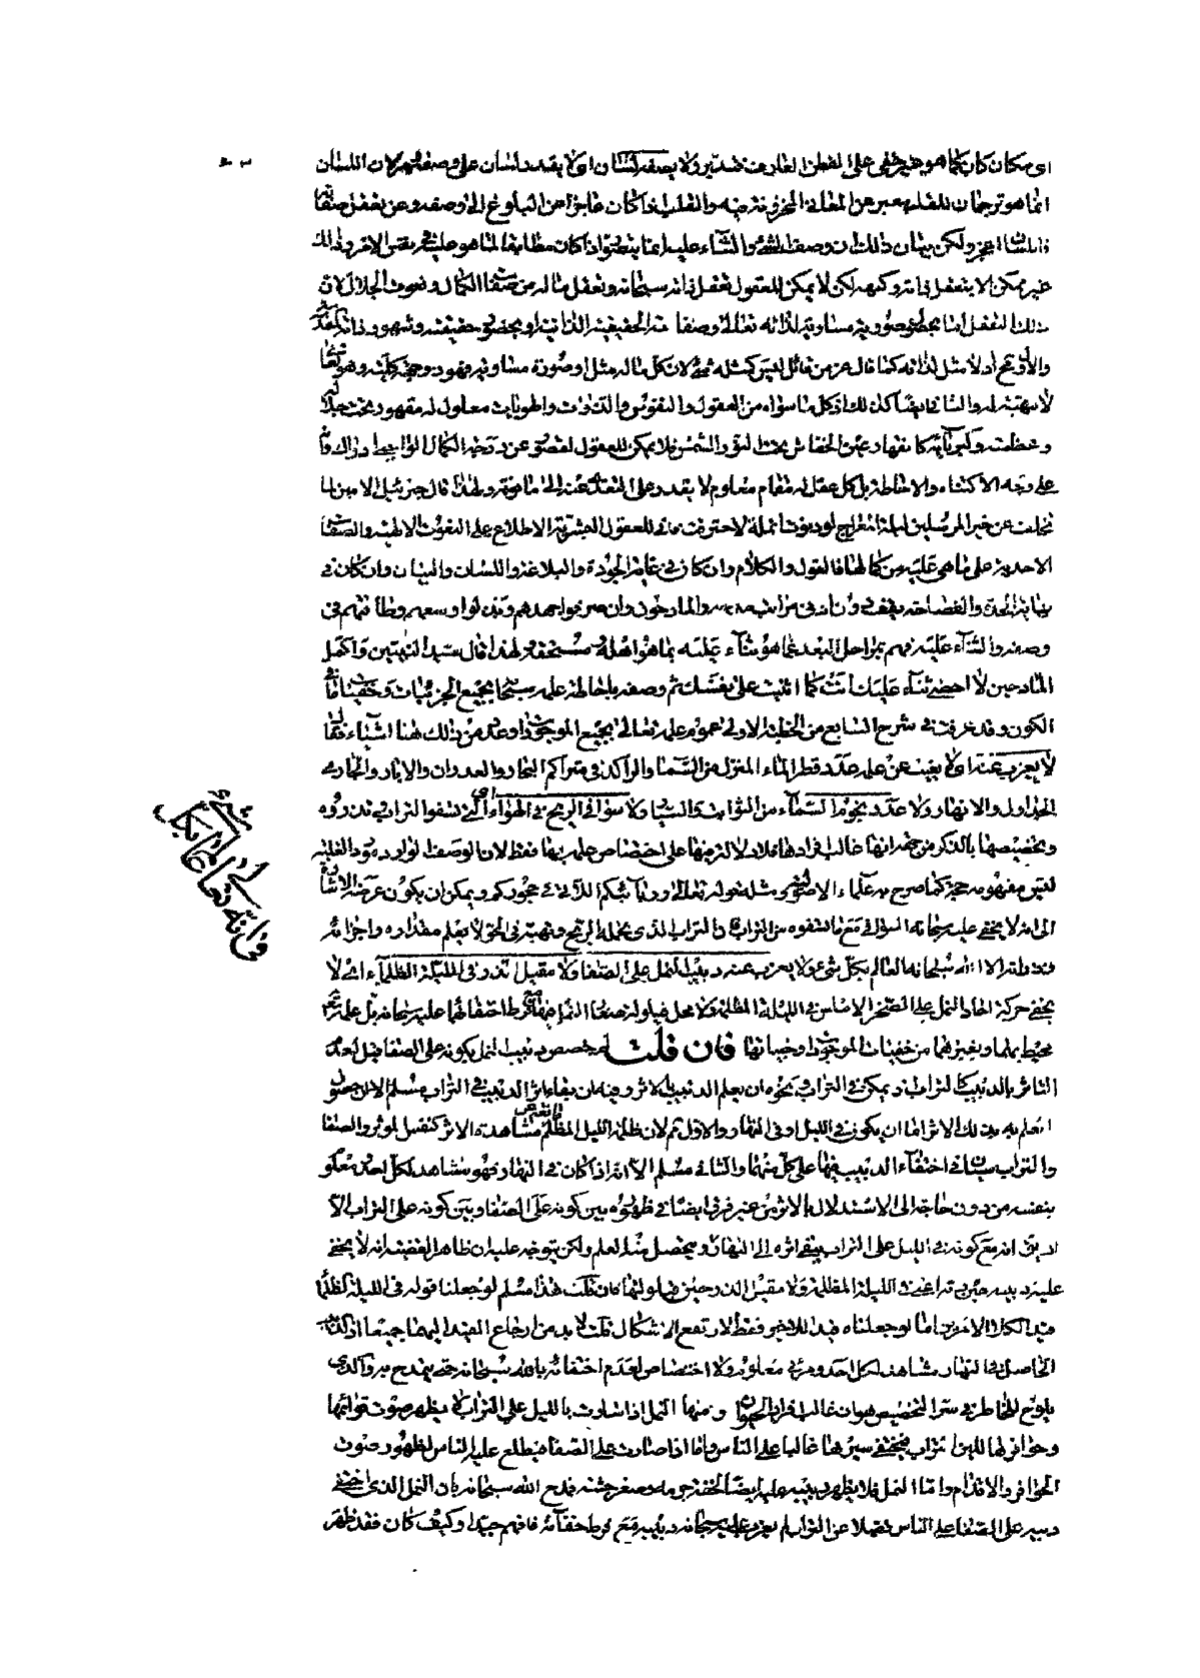 اى مكان كان كما هو غير خفى على الفطن العارف فتدبر ولا يصفه لسان اى لا يقدر لسان على وصفه لان اللسان
انما هو ترجمان للقلب يعبر عن المعانى المخزونة فيه والقلب اذا كان عاجزا عن البلوغ الى وصفه وعن تعقل صفاته
فاللسان اعجز ولكن بيان ذلك ان وصف الشىء والثناء عليه انما يتصور اذا كان مطابقا لما هو عليه فى نفس الامر وذلك
غير ممكن الا بتعقل ذاته وكنهه لكن لا يمكن للعقول تعقل ذاته سبحانه وتعقل ماله من صفات الكمال ونعوت الجلال لان
ذلك التعقل اما بحصول صورة مساوية لذاته تعالى وصفاته الحقيقية الذاتية او بحضور حقيقته وشهود ذاته
والاول مح اذ لا مثل لذاته كما قال عز من قائل ليس كمثله شىء لان كل ماله مثل او صورة مساوية فهو ذو مهية كلية وهو تعالى
لا مهية له والثانى ايضا كذلك اذ كل ما سواه من العقول والنفوس والذوات والهويات معلول له مقهور تحت جلاله
وعظمته وكبريائه كانقهار عين الخفاش تحت نور الشمس فلا يمكن للعقول لقصور عن درجة الكمال الواجبى ادراك ذاته
على وجه الاكتناه والاحاطة بل كل عقل له مقام معلوم لا يقدر على التعدى عنه الى ما فوقه ولهذا قال جبرئيل الامين لما
تخلف عن خير المرسلين ليلة المعراج لو دنوت انملة لاحترقت فانى للعقول البشرية الاطلاع على النعوت الالهية والصفات
الاحدية على ما هى عليه من كمالها فالقول والكلام وان كان فى غاية الجودة والبلاغة واللسان والبيان وان كان فى
نهاية الحدة والفصاحة يقف دون ادنى مراتب مدحه والمادحون وان صرفوا جهدهم وبذلوا وسعهم وطاقتهم فى
وصفه والثناء عليه فهم بمراحل البعد عما هو ثناء عليه بما هو اهله ومستحقه ولهذا قال سيد النبيين واكمل
المادحين لا احصى ثناء عليك انت كما اثنيت على نفسك ثم وصفه باحاطة علمه سبحانه بجميع الجزئيات وخفيات ما فى
الكون وقد عرفت فى شرح السابع من الخطبة الاولى عموم علمه تعالى بجميع الموجودات وعد من ذلك هنا اشياء فقال
لا يعزب عنه اى لا يغيب عن علمه عدد قطر الماء المنزل من السماء والراكد فى متراكم البحار والغدران والابار والجارى فى
الجداول والانهار ولا عدد نجوم السماء من الثوابت والسيارات ولا سوافى الريح فى الهواء اى التى تسفوا التراب تذروه
وتخصيصها بالذكر من جهة انها غالب افرادها فلا دلالة منها على اختصاص علمه بها فقط لان الوصف الوارد مورد الغلبة
ليس مفهومه حجة كما صرح به علماء الاصول ومثله قوله تعالى وربائبكم اللاتى فى حجوركم ويمكن ان يكون غرضه الاشارة
الى انه لا يخفى عليه سبحانه السوافى مع ما تسفوه من التراب فالتراب الذى يحمله الريح ويبثه فى الجو لا يعلم مقداره واجزائه
وذراته الا الله سبحانه العالم بكل شىء ولا يعزب عنه دبيب النمل على الصفا ولا مقيل الذر فى الليلة الظلماء اى لا
يخفى حركة احاد النمل على الصخر الاملس فى الليلة المظلمة ولا محل قيلولة صغار النمل فيها مع فرط اختفائهما عليه سبحانه بل علمه
محيط بهما وبغيرهما من خفيات الموجودات وخبياتها فان قلت لم خصص دبيب النمل بكونه على الصفا قيل لعدم
التاثر بالدبيب كالتراب اذ يمكن فى التراب ونحوه ان يعلم الدبيب بالاثر وفيه ان بقاء اثر الدبيب فى التراب مسلم الا ان حصول
العلم به بذلك الاثر اما ان يكون فى الليل او فى النهار والاول مم لان ظلمة الليل المظلم مانعة عن مشاهدة الاثر كنفس المؤثر والصفا
والتراب سيان فى اختفاء الدبيب فيها على كل منهما والثانى مسلم الا انه اذا كان فى النهار فهو مشاهد لكل احد معلوم
بنفسه من دون حاجة الى الاستدلال بالاثر من غير فرق ايضا فى ظهوره بين كونه على الصفا وبين كونه على التراب الا
ان يق انه مع كونه فى الليل على التراب يبقى اثره الى النهار ويحصل منه العلم ولكن يتوجه عليه ان ظاهر القضية انه لا يخفى
عليه دبيبه حين دبيبه فى الليلة المظلمة ولا مقيل الذر حين قيلولتها فان قلت هذا مسلم لو جعلنا قوله فى الليلة الظلماء
قيدا لكلا الامرين اما لو جعلناه قيدا للاخير فقط لارتفع الاشكال قلت لا بد من ارجاع القيد اليهما جميعا اذ الدبيب
الحاصل فى النهار مشاهد لكل احد ومرئى معلوم ولا اختصاص لعدم اختفائه بالله سبحانه حتى يتمدح به والذى
يلوح للخاطر فى سر التخصيص هو ان غالب افراد الحيوان ومنها النمل اذا سارت بالليل على التراب لا يظهر صوت قوائمها
وحوافرها للين التراب فيختفى سيرها غالبا على الناس واما اذا صارت على الصفا فيطلع عليه الناس لظهور صوت
الحوافر والاقدام واما النمل فلا يظهر دبيبه عليه ايضا لخفة جرمه وصغر جثته فمدح الله سبحانه بان النمل الذى اختفى
دبيبه على الصفا على الناس فضلا عن التراب لم يعزب عليه سبحانه دبيبه مع فرط خفائه فافهم جيدا وكيف كان فقد ظهر